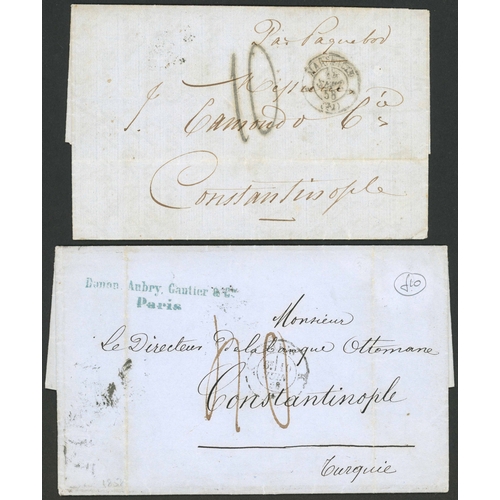 Par Paquebot
10
Messieurs
J. Camondo & Cie
Constantinople
Danon, Aubry, Gautier & C.
Paris
Monsieur
Le Directeur de la Banque Ottomane
Constantinople
Turquie